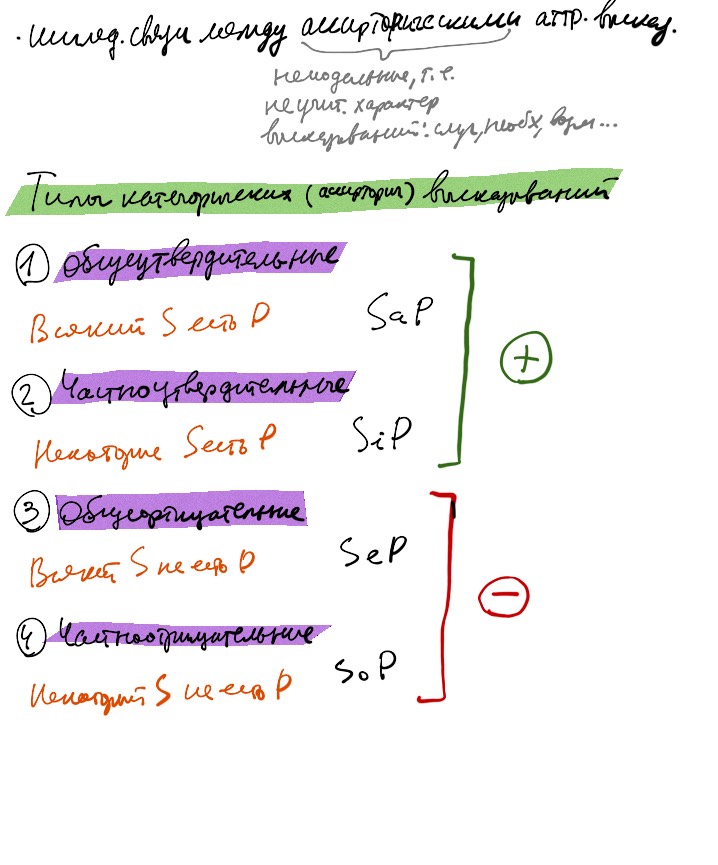 · исслед. связи между ассерторическими аттр. выска3.
немодальные, т.е.
не учит. характер
высказываний: случ, необх, возм...
Типы категорических (ассерторич) высказываний
1 Общеутвердительные
Всякий S есть P SaP
+
2 Частноутвердительные
Некоторые S есть P SiP
3 Общеотрицательные
Всякий S не есть P SeP
−
4 Частноотрицательные
Некоторый S не есть P SoP